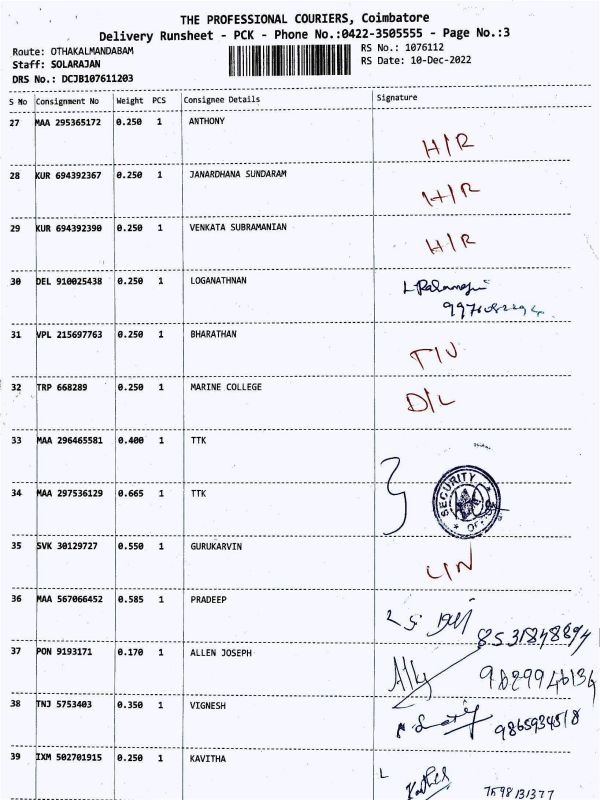 THE PROFESSIONAL COURIERS, Coimbatore
Delivery Runsheet - PCK - Phone No.:0422-3505555 - Page No.:3
Route: OTHAKALMANDABAM RS No.: 1076112
Staff: SOLARAJAN RS Date: 10-Dec-2022
DRS No.: DCJB107611203
S No Consignment No Weight PCS Consignee Details Signature
27 MAA 295365172 0.250 1 ANTHONY H/R
28 KUR 694392367 0.250 1 JANARDHANA SUNDARAM H/R
29 KUR 694392390 0.250 1 VENKATA SUBRAMANIAN H/R
30 DEL 910025438 0.250 1 LOGANATHNAN
31 VPL 215697763 0.250 1 BHARATHAN
32 TRP 668289 0.250 1 MARINE COLLEGE D/L
33 MAA 296465581 0.400 1 TTK
34 MAA 297536129 0.665 1 TTK SECURITY
35 SVK 30129727 0.550 1 GURUKARVIN
36 MAA 567066452 0.585 1 PRADEEP
8531848894
37 PON 9193171 0.170 1 ALLEN JOSEPH
38 TNJ 5753403 0.350 1 VIGNESH 9865934518
39 IXM 502701915 0.250 1 KAVITHA